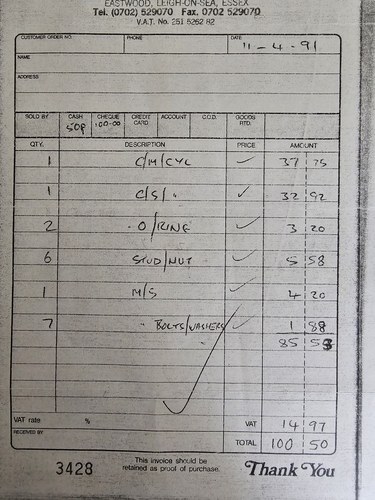 EASTWOOD, LEIGH-ON-SEA, ESSEX
Tel. (0702) 529070 Fax. 0702 529070
V.A.T. No. 251 5262 82
CUSTOMER ORDER NO. PHONE DATE 11-4-91
NAME
ADDRESS
SOLD BY CASH CHEQUE CREDIT CARD ACCOUNT C.O.D. GOODS RTD.
50p 100-00
QTY. DESCRIPTION PRICE AMOUNT
1 C/M/CYL ✓ 37 75
1 C/S/ " ✓ 32 92
2 O/RING ✓ 3 20
6 STUD/NUT ✓ 5 58
1 M/S ✓ 4 20
7 " BOLTS/WASHERS ✓ 1 88
85 53
VAT rate % VAT 14 97
RECEIVED BY TOTAL 100 50
3428 This invoice should be retained as proof of purchase. Thank You